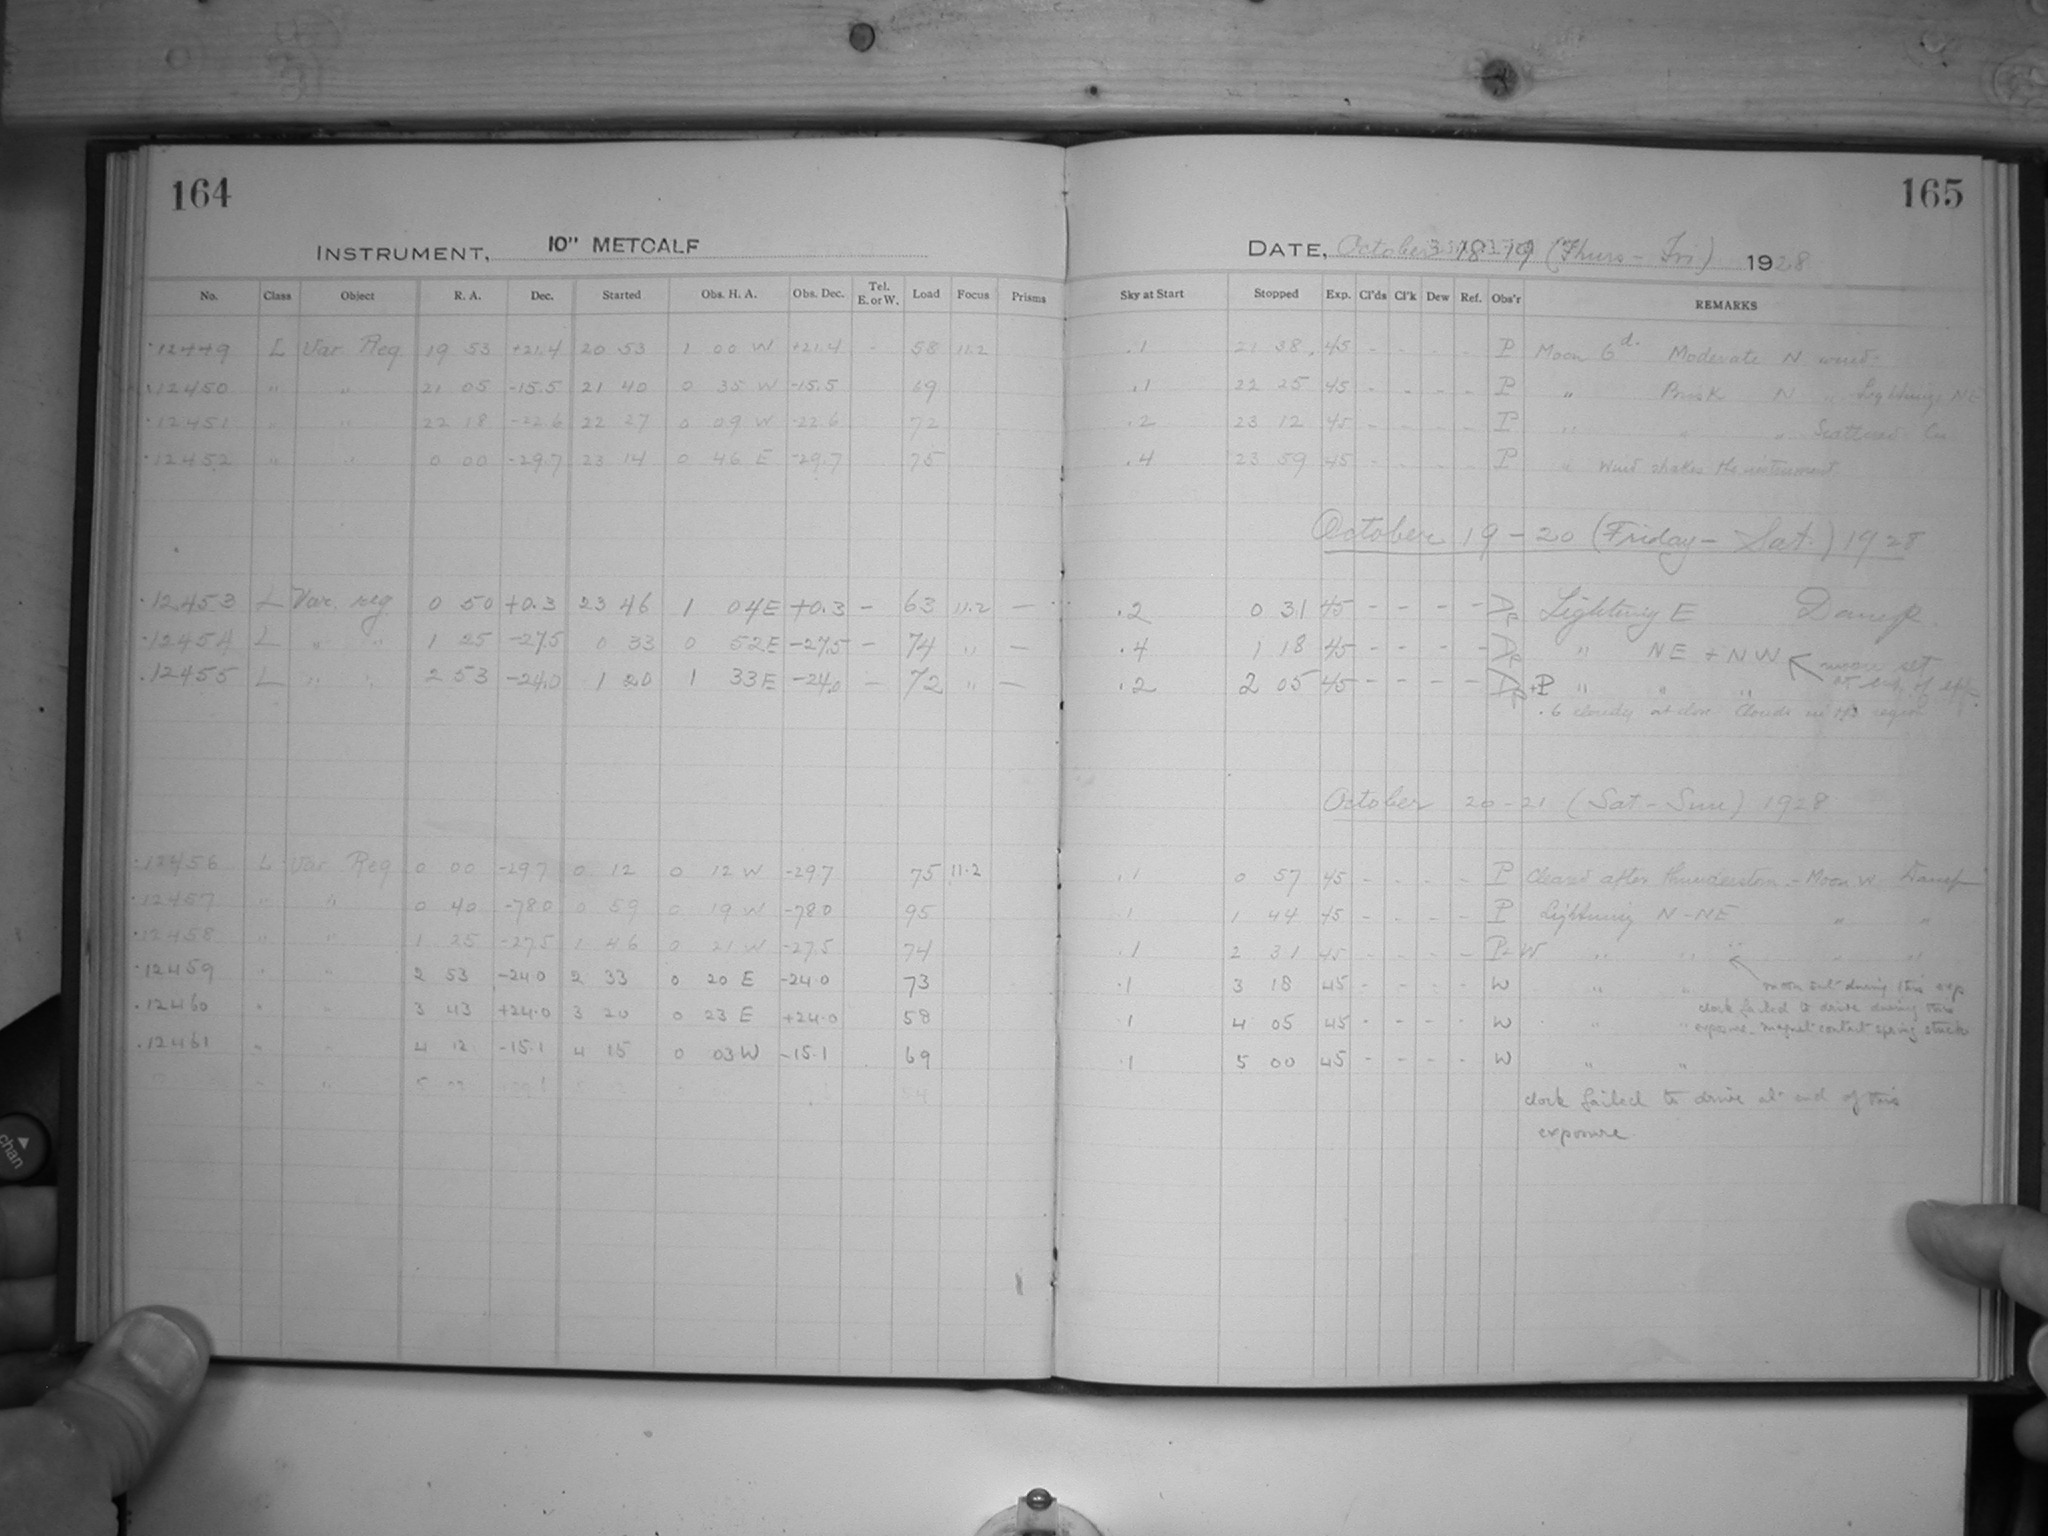 164
165
INSTRUMENT, 10" METCALF
DATE, October 18-19 (Thurs-Fri) 1928
No. Class Object R. A. Dec. Started Obs. H. A. Obs. Dec. Tel. E. or W. Load Focus Prisms Sky at Start Stopped Exp. Cl'ds Cl'k Dew Ref. Obs'r REMARKS
12449 L Var Reg 19 53 +21.4 20 53 1 00 W +21.4 - 58 11.2 .1 21 38 45 - - - - P Moon 6d. Moderate N wind
12450 " " 21 05 -15.5 21 40 0 35 W -15.5 69 .1 22 25 45 - - - - P " Brisk N " Lightning NE
12451 " " 22 18 -22.6 22 27 0 09 W -22.6 72 .2 23 12 45 - - - - P " " " Scattered Cu
12452 " " 0 00 -29.7 23 14 0 46 E -29.7 75 .4 23 59 45 - - - - P " Wind shakes the instrument
October 19-20 (Friday-Sat.) 1928
12453 L Var. reg 0 50 +0.3 23 46 1 04E +0.3 - 63 11.2 - .2 0 31 45 - - - - Lightning E Damp
12454 L " " 1 25 -27.5 0 33 0 52E -27.5 - 74 " - .4 1 18 45 - - - - " NE + NW
moon set
12455 L " " 2 53 -24.0 1 20 1 33E -24.0 - 72 " - .2 2 05 45 - - - - +P " " "
.6 cloudy at close Clouds in the region
October 20-21 (Sat-Sun) 1928
12456 L Var Reg 0 00 -29.7 0 12 0 12 W -29.7 75 11.2 .1 0 57 45 - - - - P Cleared after thunderstorm - Moon W Damp
12457 " " 0 40 -78.0 0 59 0 19 W -78.0 95 .1 1 44 45 - - - - P Lightning N-NE " "
12458 " " 1 25 -27.5 1 46 0 21 W -27.5 74 .1 2 31 45 - - - - P-W " " " " "
12459 " " 2 53 -24.0 2 33 0 20 E -24.0 73 .1 3 18 45 - - - - W " "
moon set during this exp
12460 " " 3 43 +24.0 3 20 0 23 E +24.0 58 .1 4 05 45 - - - - W " "
clock failed to drive during this
exposure - magnet contact spring stuck
12461 " " 4 12 -15.1 4 15 0 03 W -15.1 69 .1 5 00 45 - - - - W " "
clock failed to drive at end of this
exposure.
chan